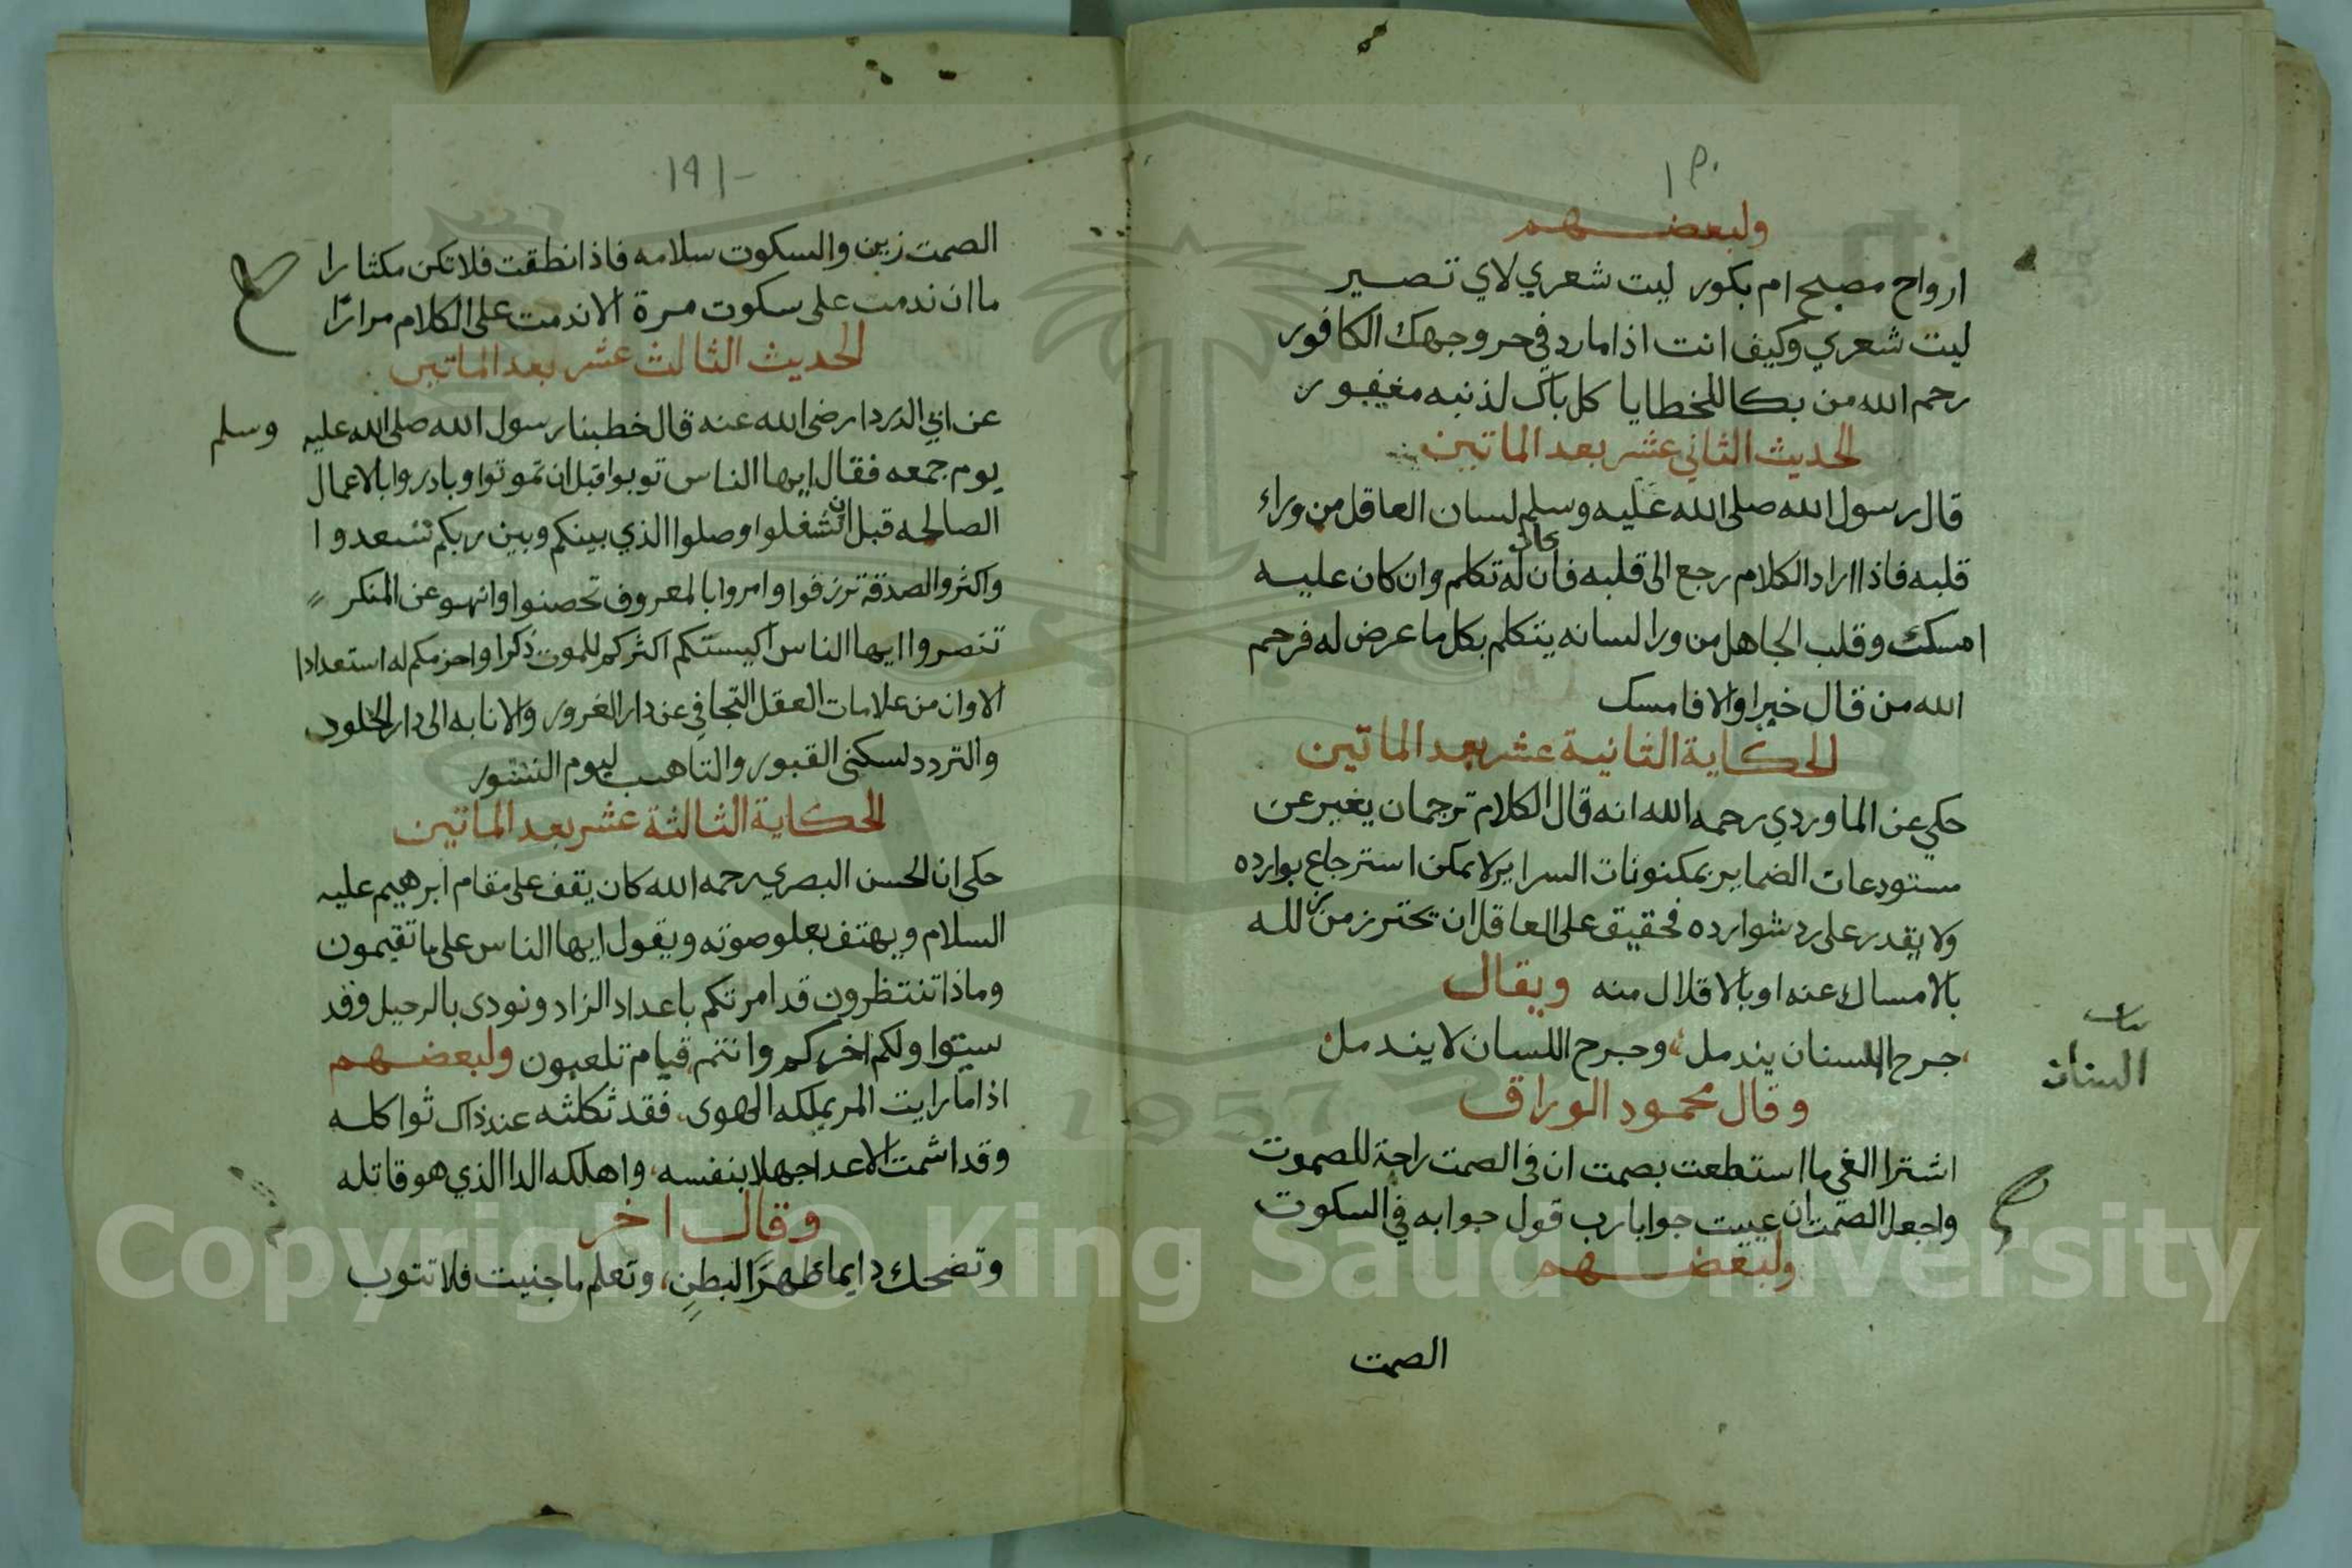 ١٩٠
ولبعضهم
ارواح مصبح ام بكور ليت شعري لاي تصير
ليت شعري وكيف انت اذا مارد في حر وجهك الكافور
رحم الله من بكا للخطايا كل باك لذنبه مغفور
الحديث الثاني عشر بعد الماتين
قال رسول الله صلى الله عليه وسلم لسان العاقل من وراء
قلبه فاذا اراد الكلام رجع الى قلبه فان كان له تكلم وان كان عليه
امسك وقلب الجاهل من ورا لسانه يتكلم بكل ما عرض له فرحم
الله من قال خيرا والا فامسك
الحكاية الثانية عشر بعد الماتين
حكي عن الماوردي رحمه الله انه قال الكلام ترجمان يغبر عن
مستودعات الضماير بمكنونات السراير لا يمكن استرجاع بوارده
ولا يقدر على رد شوارده فحقيق على العاقل ان تحترز من زلله
بالامساك عنه او بالاقلال منه ويقال
جرح اللسنان يندمل وجرح اللسان لا يندمل
السنان
وقال محمود الوراق
اشترا الغي ما استطعت بصمت ان في الصمت راحة للصموت
واجعل الصمت ان عييت جوابا رب قول جوابه في السكوت
ولبعضهم
الصمت
١٩١
الصمت زين والسكوت سلامه فاذا نطقت فلا تكن مكثارا
ما ان ندمت على سكوت مرة الا ندمت على الكلام مرارًا
الحديث الثالث عشر بعد الماتين
عن ابي الدردا رضى الله عنه قال خطبنا رسول الله صلى الله عليه وسلم
يوم جمعه فقال ايها الناس توبوا قبل ان تموتوا وبادروا بالاعمال
الصالحه قبل ان تشغلوا وصلوا الذي بينكم وبين ربكم تسعدوا
واكثروا الصدقة ترزقوا وامروا بالمعروف تحصنوا وانهو عن المنكر
تنصروا ايها الناس اكيستكم اكثركم للموت ذكرا واحزمكم له استعدادا
الا وان من علامات العقل التجافي عن دار الغرور والانابه الى دار الخلود
والتردد لسكنى القبور والتاهب ليوم النشور
الحكاية الثالثة عشر بعد الماتين
حكى ان الحسن البصري رحمه الله كان يقف على مقام ابرهيم عليه
السلام ويهتف بعلو صوته ويقول ايها الناس على ما تقيمون
وماذا تنتظرون قد امرتكم باعداد الزاد ونودى بالرحيل وقد
ستوا ولكم اخركم وانتم قيام تلعبون ولبعضهم
اذا ما رايت المر يملكه الهوى فقد ثكلثه عند ذاك ثواكله
وقد اشمت الاعدا جهلا بنفسه واهلكه الدا الذي هو قاتله
وقال اخر
وتضحك دايما ظهرًا لبطنٍ وتعلم ما جنيت فلا تتوب
Copyright © King Saud University
1957